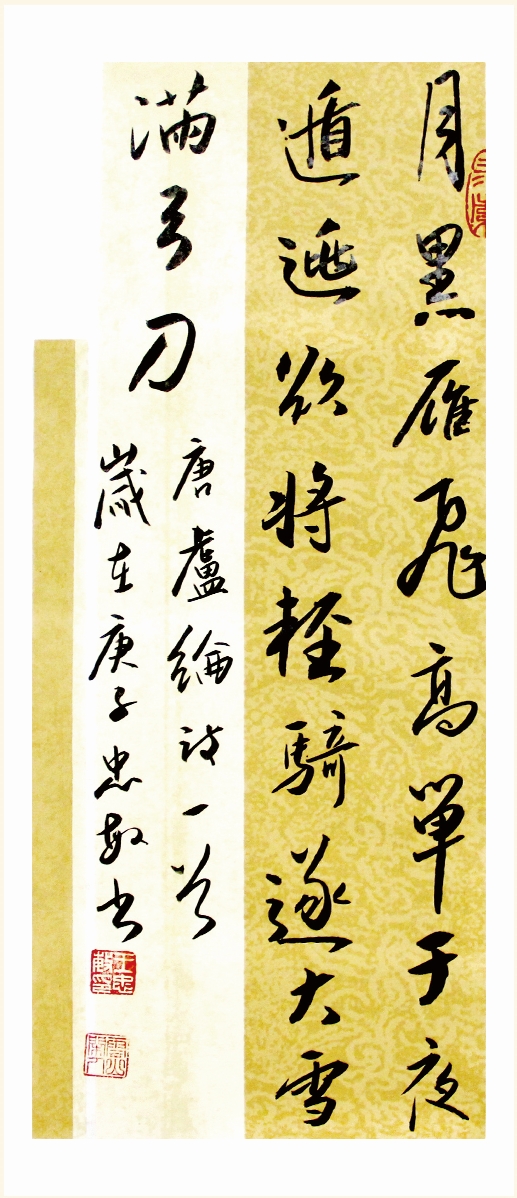 月黑雁飛高單于夜
遁逃欲將輕騎遂大雪
滿弓刀
唐盧綸詩一首
歲在庚子忠敏书
王忠敏印